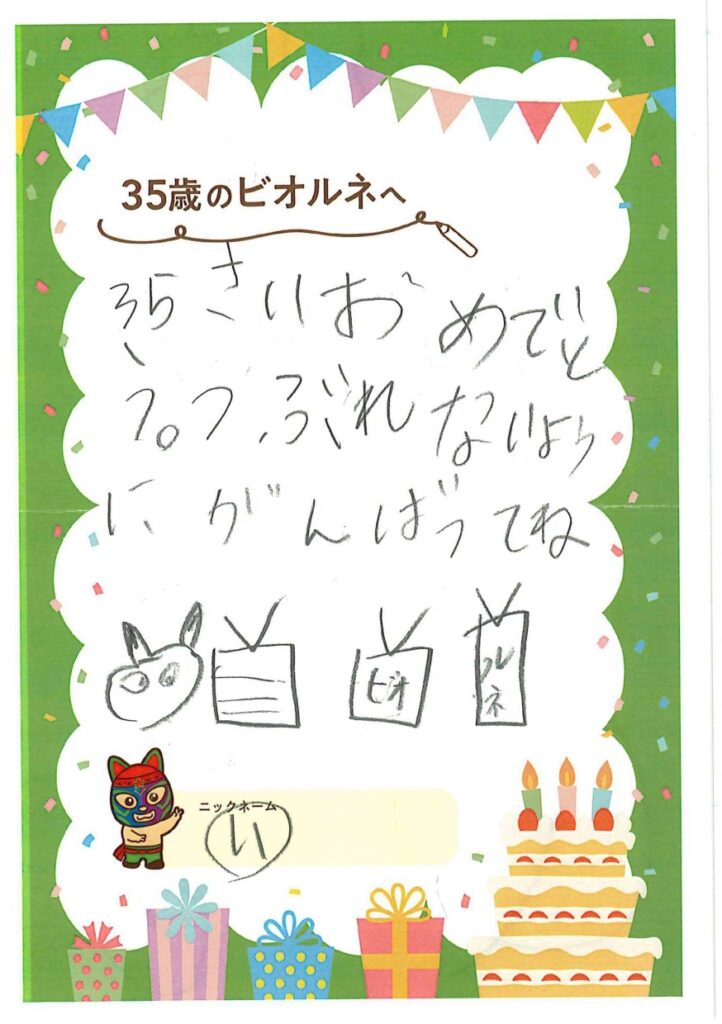 35歳のビオルネへ
35さいおめでと
つぶれないよう
に がんばってね
ビオ
ルネ
ニックネーム
い